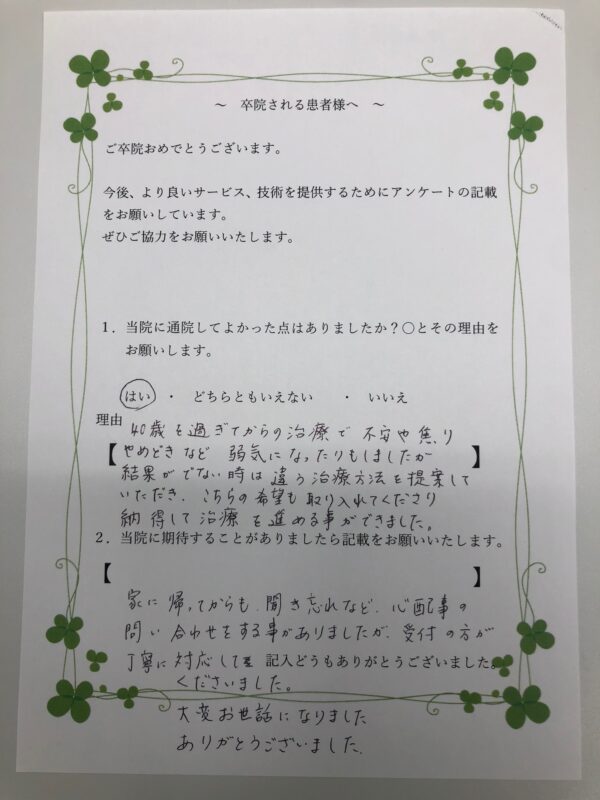 ～　卒院される患者様へ　～
ご卒院おめでとうございます。
今後、より良いサービス、技術を提供するためにアンケートの記載
をお願いしています。
ぜひご協力をお願いいたします。
１．当院に通院してよかった点はありましたか？〇とその理由を
お願いします。
はい　・　どちらともいえない　・　いいえ
理由
40歳を過ぎてからの治療で 不安や焦り
【やめどきなど 弱気になったりもしましたが】
結果がでない時は違う治療方法を提案して
いただき、こちらの希望も取り入れてくださり
納得して治療を進める事ができました。
２．当院に期待することがありましたら記載をお願いいたします。
【　】
家に帰ってからも、聞き忘れなど、心配事の
問い合わせをする事がありましたが、受付の方が
丁寧に対応して 記入どうもありがとうございました。
くださいました。
大変お世話になりました
ありがとうございました。